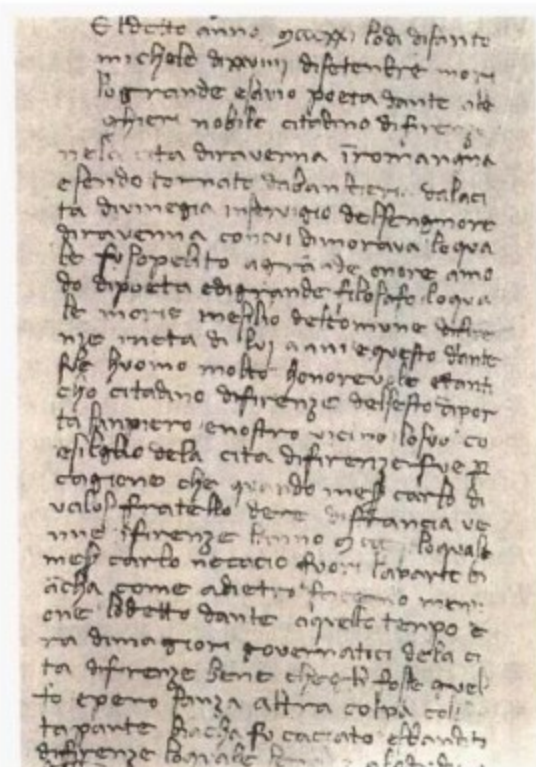 E ldetto anno mcccxxi lo di di santo
michele di xxviiii di setenbre mori
lo grande e savio poeta dante ale
ghieri nobile citadino di firenze
nela cita di raverna i romangnia
esendo tornato da banscieri dalaci
ta di vinegia in servigio del sengniore
di ravenna con cui dimorava lo qua
le fu sopelito a grande onore amo
do di poeta e di grande filosafo lo qua
le morie in esilio del comune di fire
nze in eta di lvi anni e questo dante
fue huomo molto honorevole et anti
cho citadino di firenze del sesto di por
ta san piero e nostro vicino lo suo
esiglio dela cita di firenze fue p
cagione che quando mes carlo di
valos fratello de re di francia ve
nne i firenze l anno mccc lo quale
mes carlo ne caccio fuori la parte bi
ancha come adietro facemo men
one lo detto dante a quello tenpo e
ra di magiori governatici dela ci
ta di firenze bene che elli fosse guel
fo e pero sanza altra colpa cola
ta parte biacha fu caciato e sbandito
di firenze lo quale